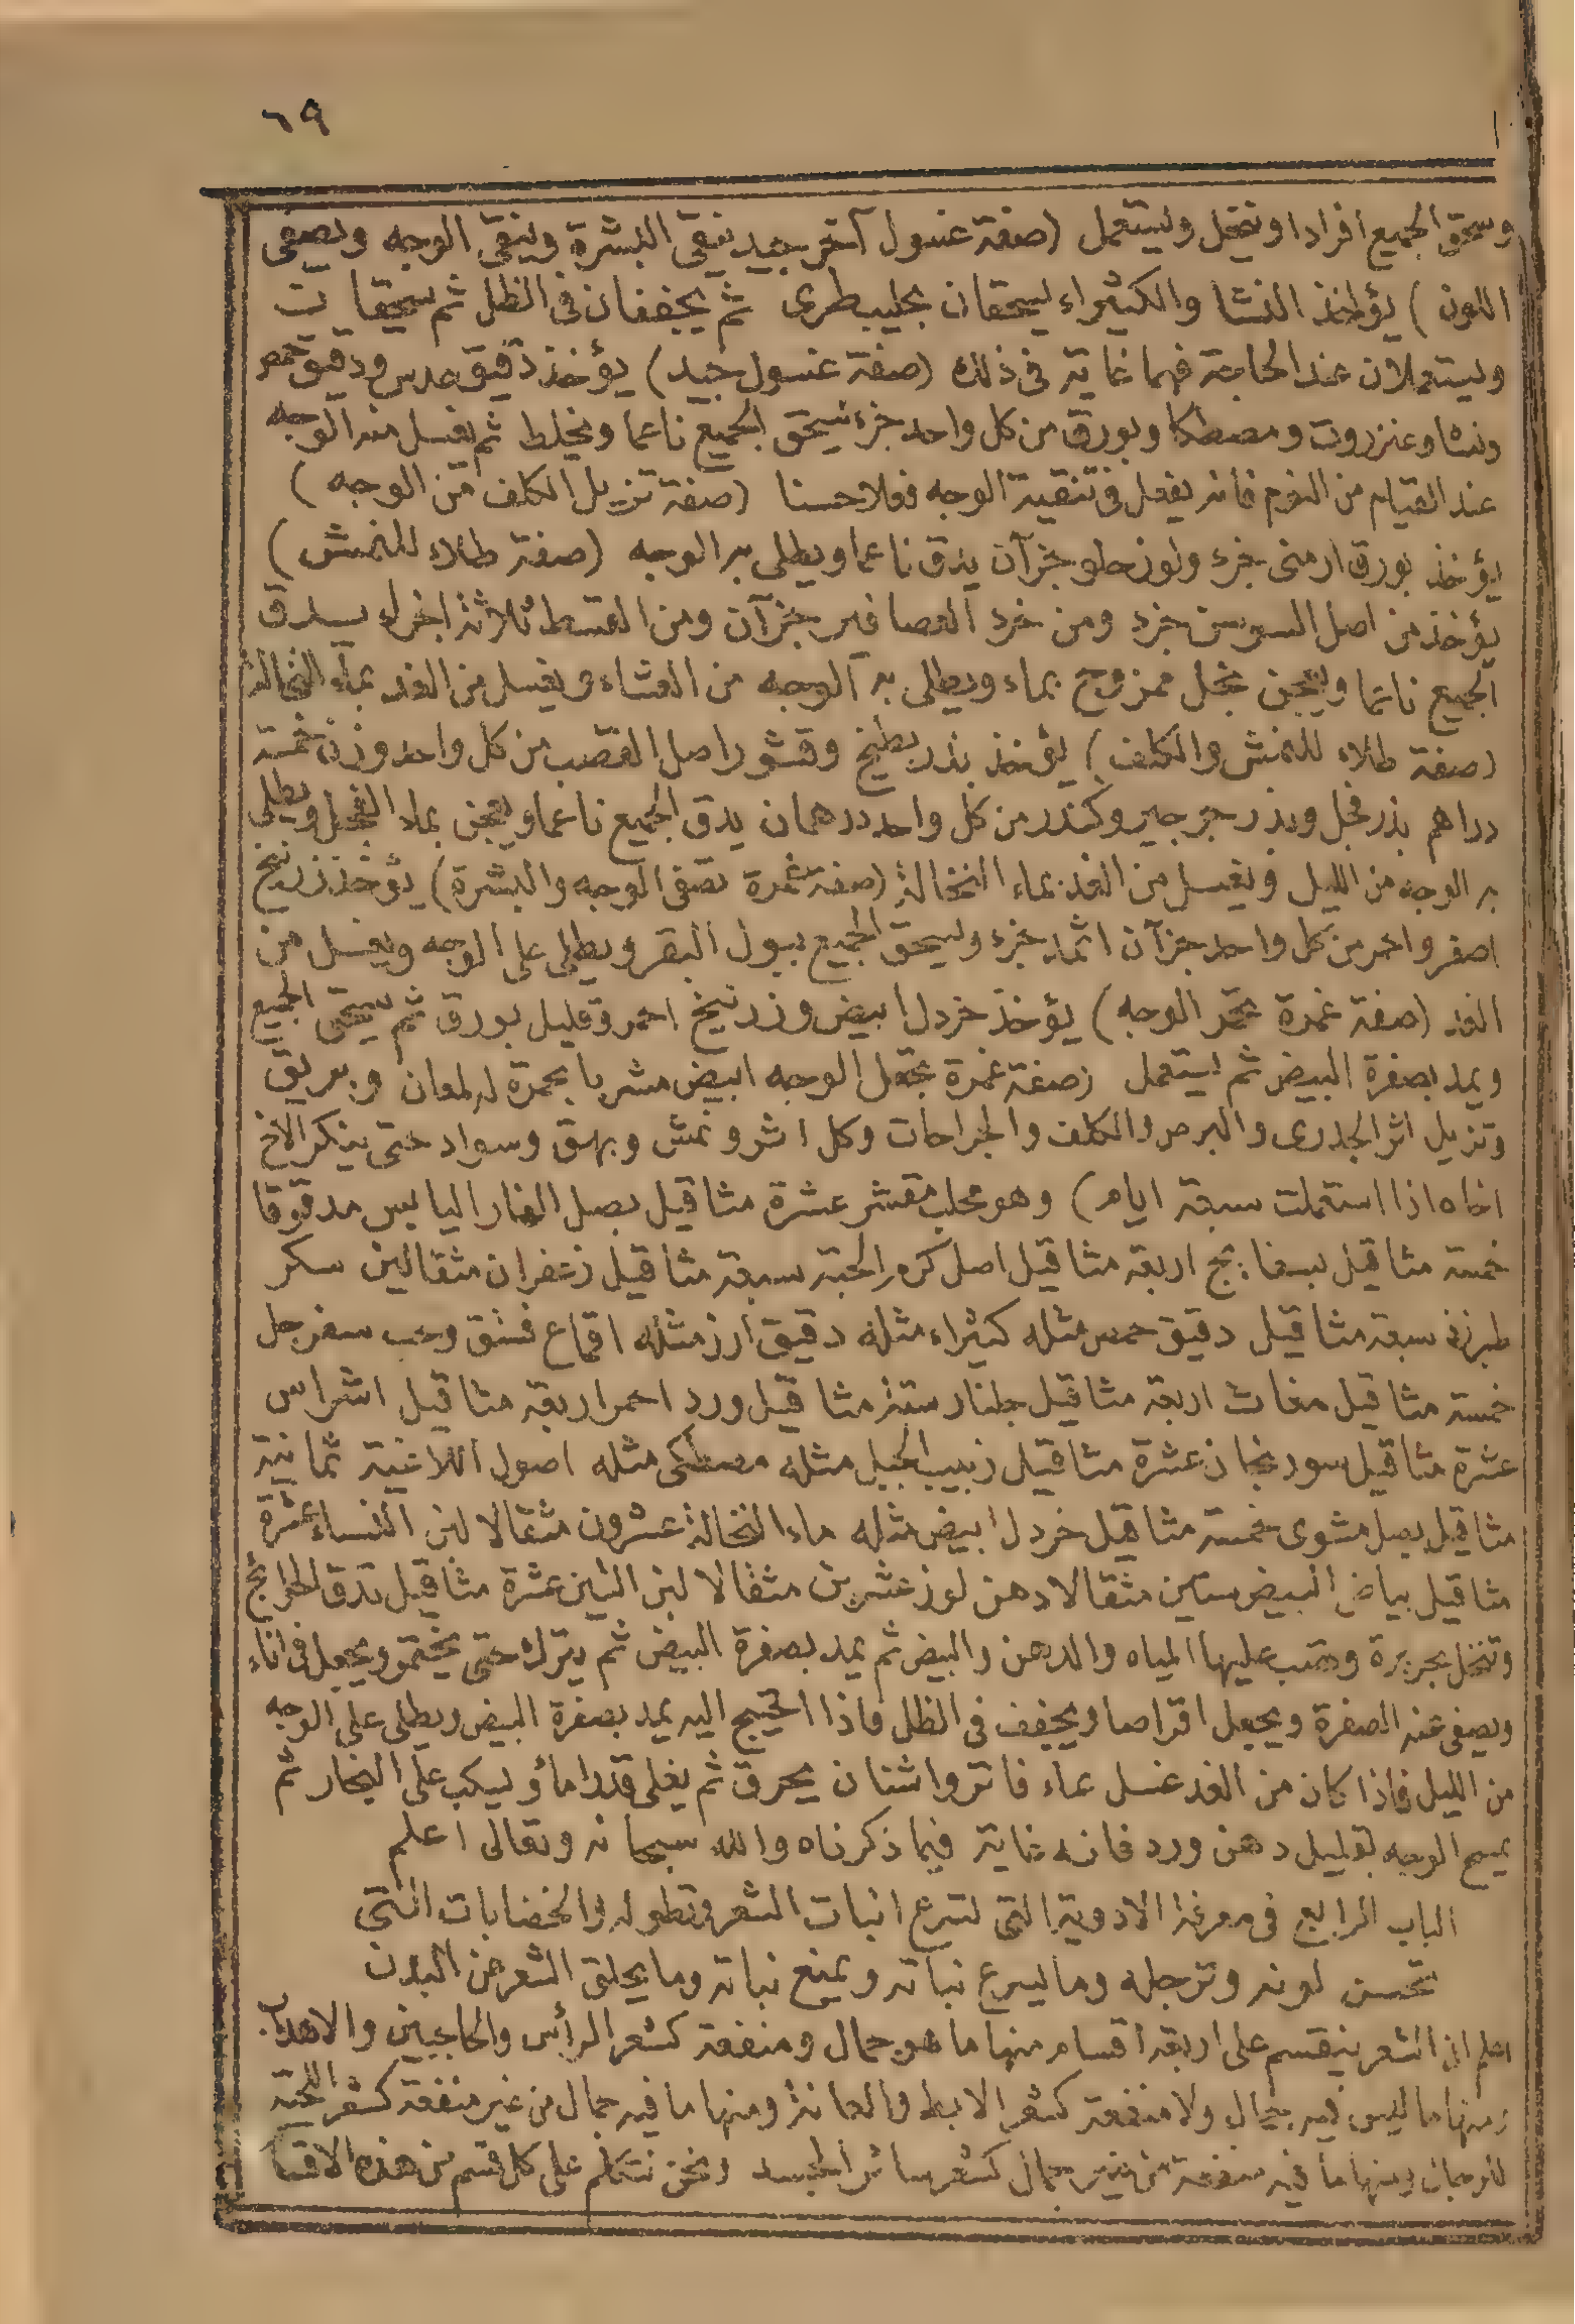 ٦٩
وسحق الجميع افرادا وينخل ويستعمل (صفة غسول آخر جيد ينقي البشرة وينقي الوجه ويصفي
اللون) يؤخذ النشا والكثيراء يسحقان بحليب طرى ثم يجففان فى الظل ثم يسحقا ن
ويستعملان عند الحاجة فهما غاية فى ذلك (صفة غسول جيد) يؤخذ دقيق عدس ودقيق حمص
ونشا وعنزروت ومصطكا وبورق من كل واحد جزء يسحق الجميع ناعما ويخلط ثم يغسل منه الوجه
عند القيام من النوم فانه يفعل فى تنقية الوجه فعلا حسنا (صفة تزيل الكلف من الوجه)
يؤخذ بورق ارمنى جزء ولوز حلو جزآن يدق ناعما ويطلى به الوجه (صفة طلاء للنمش)
يؤخذ من اصل السوسن جزء ومن خرء العصافير جزآن ومن القسط ثلاثة اجزاء يدق
الجميع ناعما ويعجن بخل ممزوج بماء ويطلى به الوجه من العشاء ويغسل من الغد بماء النخالة
(صفة طلاء للنمش والكلف) يؤخذ بذر بطيخ وقشور اصل القصب من كل واحد وزن خمسة
دراهم بذر فجل وبذر جرجير وكندر من كل واحد درهمان يدق الجميع ناعما ويعجن بماء الفجل ويطلى
به الوجه من الليل ويغسل من الغد بماء النخالة (صفة غمرة تصفى الوجه والبشرة) يؤخذ زرنيخ
اصفر واحمر من كل واحد جزآن اثمد جزء ويسحق الجميع ببول البقر ويطلى على الوجه ويغسل من
الغد (صفة غمرة تحمر الوجه) يؤخذ خردل ابيض وزرنيخ احمر وقليل بورق ثم يسحق الجميع
ويمد بصفرة البيض ثم يستعمل (صفة غمرة تجعل الوجه ابيض مشربا بحمرة له لمعان وبريق
وتزيل اثر الجدرى والبرص والكلف والجراحات وكل اثر ونمش وبهق وسواد حتى ينكر الاخ
اخاه اذا استعملت سبعة ايام) وهو محلب مقشر عشرة مثاقيل بصل الفار اليابس مدقوقا
خمسة مثاقيل بسفايج اربعة مثاقيل اصل كرم الحبة سبعة مثاقيل زعفران مثقالين سكر
طبرزد سبعة مثاقيل دقيق حمص مثله كثيراء مثله دقيق ارز مثله اقماع فستق وحب سفرجل
خمسة مثاقيل مغاث اربعة مثاقيل جلنار ستة مثاقيل ورد احمر اربعة مثاقيل اشراس
عشرة مثاقيل سورنجان عشرة مثاقيل زبيب الجبل مثله مصطكى مثله اصول اللاغية ثمانية
مثاقيل بصل مشوى خمسة مثاقيل خردل ابيض مثله ماء النخالة عشرون مثقالا لبن النساء عشرة
مثاقيل بياض البيض ستين مثقالا دهن لوز عشرين مثقالا لبن التين عشرة مثاقيل تدق الحوايج
وتنخل بحريرة وتصب عليها المياه والدهن والبيض ثم يمد بصفرة البيض ثم يترك حتى يختمر ويجعل فى اناء
ويصفى عنه الصفرة ويجعل اقراصا ويجفف فى الظل فاذا احتيج اليه يمد بصفرة البيض ويطلى على الوجه
من الليل فاذا كان من الغد غسل بماء فاتر واشنان يحرق ثم يغلى قدرا ماء ويكب على البخار ثم
يمسح الوجه بقليل دهن ورد فانه غاية فيما ذكرناه والله سبحانه وتعالى اعلم
الباب الرابع فى معرفة الادوية التى تسرع انبات الشعر وتطوله والخضابات التى
تحسن لونه وترجله وما يسرع نباته ويمنع نباته وما يحلق الشعر من البدن
اعلم ان الشعر ينقسم على اربعة اقسام منها ما هو جمال ومنفعة كشعر الرأس والحاجبين والاهداب
ومنها ما ليس فيه جمال ولا منفعة كشعر الابط والعانة ومنها ما فيه جمال من غير منفعة كشعر اللحية
للرجال ومنها ما فيه منفعة من غير جمال كشعر سائر الجسد ونحن نتكلم على كل قسم من هذه الاقسا